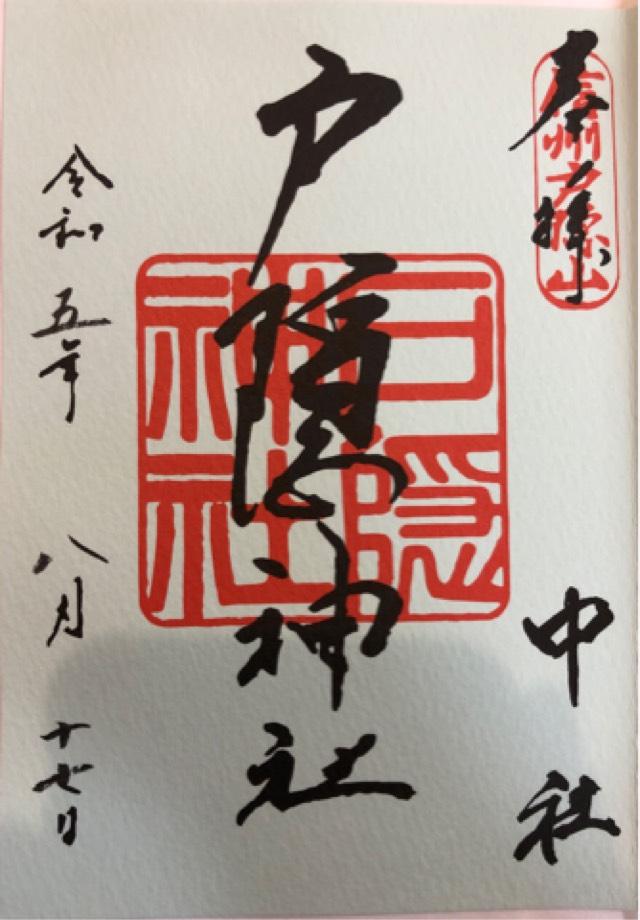 奉拝
信州戸隠山
中社
戸隠神社
戸隠
神社
令和五年八月十七日